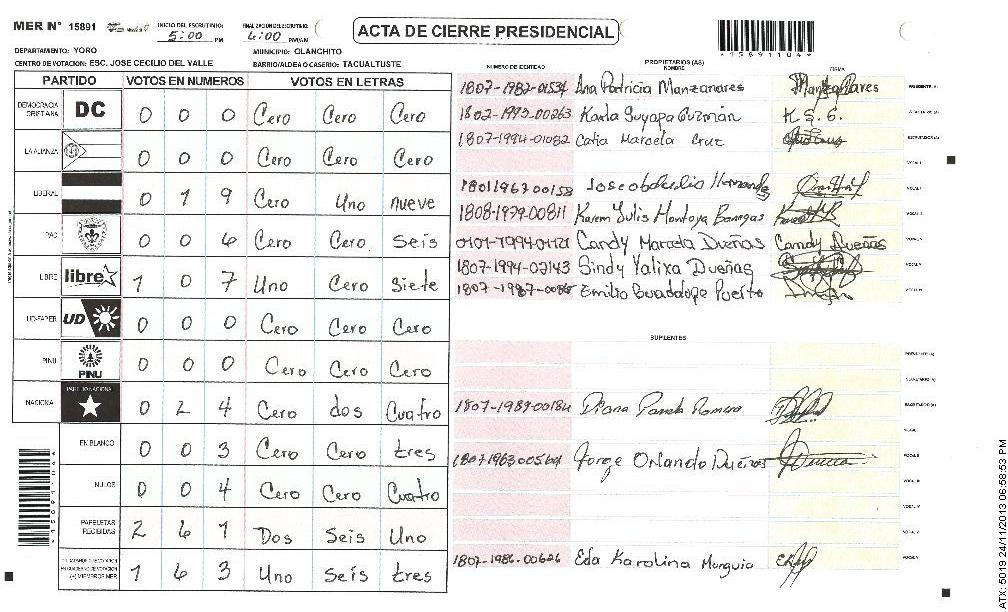 MER N° 15891 INICIO DEL ESCRUTINIO 5:00 PM FINALIZACION DEL ESCRUTINIO 6:00 PM/AM ACTA DE CIERRE PRESIDENCIAL *15891104*
DEPARTAMENTO: YORO MUNICIPIO: OLANCHITO
CENTRO DE VOTACION: ESC. JOSE CECILIO DEL VALLE BARRIO/ALDEA O CASERIO: TACUALTUSTE
PARTIDO VOTOS EN NUMEROS VOTOS EN LETRAS
DEMOCRACIA CRISTIANA DC 0 0 0 Cero Cero Cero
LA ALIANZA 0 0 0 Cero Cero Cero
LIBERAL 0 1 9 Cero Uno nueve
PAC 0 0 6 Cero Cero Seis
LIBRE libre 1 0 7 Uno Cero Siete
UD-FAPER UD 0 0 0 Cero Cero Cero
PINU PINU 0 0 0 Cero Cero Cero
NACIONAL PARTIDO NACIONAL 0 2 4 Cero dos Cuatro
EN BLANCO 0 0 3 Cero Cero tres
NULOS 0 0 4 Cero Cero Cuatro
PAPELETAS RECIBIDAS 2 6 1 Dos Seis Uno
(+) MIEMBROS MER 1 6 3 Uno Seis tres
NUMERO DE IDENTIDAD PROPIETARIOS (AS) NOMBRE FIRMA
1807-1982-01534 Ana Patricia Manzanares Manzanares PRESIDENTE (A)
1802-1993-00263 Karla Suyapa Guzmán K.S.G.
1807-1994-01082 Catia Marcela Cruz ESCRUTADOR (A)
VOCAL I
1801196700158 Jose obdulio Hernandez
1808-1979-00811 Karem Yulis Montoya Banegas
Candy Marcela Dueñas Candy Dueñas
1807-1994-02143 Sindy Yalixa Dueñas
Emilio Guadalope Puerto
SUPLENTES
PRESIDENTE (A)
SECRETARIO (A)
1807-1989-00184 Diana Romero ESCRUTADOR (A)
Jorge Orlando Dueñas
1807-1986-00626 Eda Karolina Murguia
*15891104*
ATX: 5019 24/11/2013 06:58:53 PM